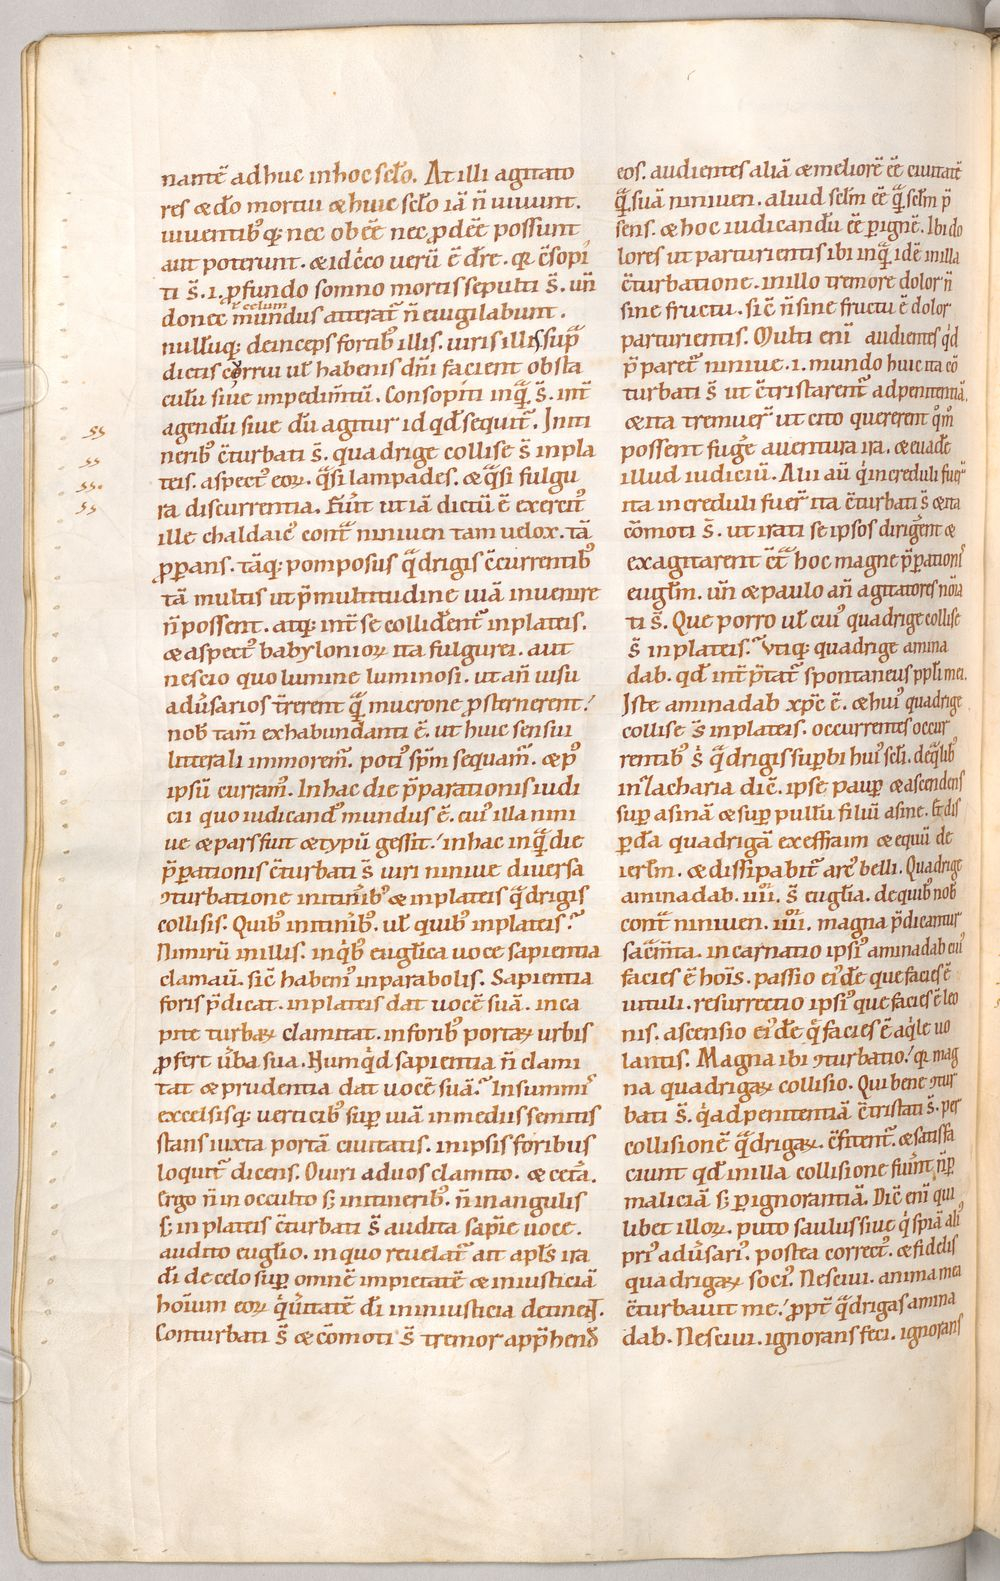 nantē adhuc inhoc sclo. At illi agitato
res & do mortui & huic sclo iā n̄ uiuunt.
uiuentib; q; nec obēē nec ꝓdēē possunt
aut poterunt. & idcco uerū ē dr̄e. qr c̄sopi
ti s̄. i. ꝓfundo somno mortis sepulti s̄. un̄
celum
donec mundus atterat̄ n̄ euigilabunt.
nullusq; deinceps fortib; illis. uiris illis sup̄
dictis currui ul habenis dn̄i facient obsta
culū siue impedim̄tū. Consopiti inq̄ s̄. int̄
agendū siue dū agitur id qd sequit̄. Initi
nerib; c̄turbati s̄. quadrige collise s̄ inpla
teis. aspect eoꝝ. q̄si lampades. & q̄si fulgu
ra discurrentia. Fuit ut iā dictū ē exercit
ille chaldaic cont̄ niniuen tam uelox. tā
ꝓꝑans. tāq; pomposus q̄drigis c̄currentib;
tā multis ut p̄ multitudine uiā inuenire
n̄ possent. atq; int̄ se collident̄ inplateis.
& aspect babylonioꝝ ita fulgurei. aut
nescio quo lumine luminosi. ut an̄ uisu
adūsarios t̄rerent q̄ mucrone ꝓsternerent.
nob tam̄ exhabundanti ē. ut huic sensui
litterali immorem̄. poti sp̄m sequam̄. & p
ipsū curram. Inhac die p̄parationis iudi
cii quo iudicand mundus ē. cui illa nini
ue & pars fuit & typū gessit. inhac inq̄ die
p̄parationis c̄turbati s̄ uiri niniue diuersa
ꝯturbatione initinib; & inplateis q̄drigis
collisis. Quib; initinib;. ul quib; inplateis.
Nimirū inillis. inqb; euglica uoce sapientia
clamauit. sic habem inparabolis. Sapientia
foris p̄dicat. inplateis dat uocē suā. inca
pite turbaꝝ clamitat. inforib; portaꝝ urbis
ꝓfert ūba sua. Numqd sapientia n̄ clami
tat & prudentia dat uocē suā. Insummi
excelsisq; uerticib; suꝑ uiā inmediis semitis
stans iuxta portā ciuitatis. inipsis foribus
loquit̄ dicens. O uiri aduos clamito. & cetā.
Ergo n̄ in occulto s; initinerib;. n̄ inangulis
s; inplateis c̄turbati s̄ audita sapīe uoce.
audito euglio. inquo reuelat̄ ait apls ira
di de celo suꝑ omnē impietatē & iniusticiā
hoīum eoꝝ q uitatē di in iniusticia detinent.
Conturbati s̄ & cōmoti s̄ tremor app̄hend
eos. audientes aliā & meliorē ēē ciuitatē
q̄ suā niniuen. aliud sclm ēē q̄ sclm p̄
sens. & hoc iudicandū ēē ꝑ ignē. Ibi do
lores ut parturientis ibi inq̄ idē inilla
c̄turbatione. inillo tremore dolor n̄
sine fructu. sic n̄ sine fructu ē dolor
parturientis. Multi enī audientes qd
p̄paret̄ niniue. i. mundo huic ita cō
turbati s̄ ut c̄tristarent̄ adpenitentiā.
& ita tremuer̄ ut cito quererent qm
possent fuge auentura ira. & euade
illud iudiciū. Alii aū q increduli fuer̄
ita increduli fuer̄ ita c̄turbati s̄ & ita
cōmoti s̄. ut irati se ipsos dirigent &
exagitarent c̄t hoc magne p̄paration
euglm. un̄ & paulo an̄ agitatores noīa
ti s̄. Que porro ul cui quadrige collise
s̄ inplateis. Vtiq; quadrige amina
dab. qd int p̄tat̄ spontaneus ppli mei.
Iste aminadab xp̄c ē. & hui quadrige
collise s̄ inplateis. occurrentes occur
rentib; s̄ q̄drigis suꝑbi hui scli. deqlib;
in lacharia dic̄. ipse pauꝑ & ascendens
suꝑ asinā & suꝑ pullū filiū asine. Et dis
ꝑda quadrigā ex effraim & equū de
ierlm. & dissipabit̄ arc belli. Quadrige
aminadab. iiii. s̄ euglia. dequib; nob
cont̄ niniuen. iiii. magna p̄dicantur
sacm̄ta. incarnatio ipsi aminadab cui
facies ē hoīs. passio ei de que facies ē
uituli. resurrectio ipsi que facies ē leo
nis. ascensio ei de q facies ē aqle uo
lantis. Magna ibi ꝯturbatio. qr mag
na quadrigaꝝ collisio. Qui bene ꝯtur
bati s̄. q adpenitentiā c̄tristati s̄. per
collisionē q̄drigaꝝ. c̄fitent̄. & satisfa
ciunt qd inilla collisione fiunt n̄ ꝑ
maliciā s; ꝑ ignorantiā. Dic̄ enī qui
libet illoꝝ. puto saulus siue q spiā ali
pri adūsari. postea correct. & fidelis
quadrigaꝝ soci. Nesciui. anima mea
c̄turbauit me. ꝓpt q̄drigas amina
dab. Nesciui. ignorans feci. ignorans